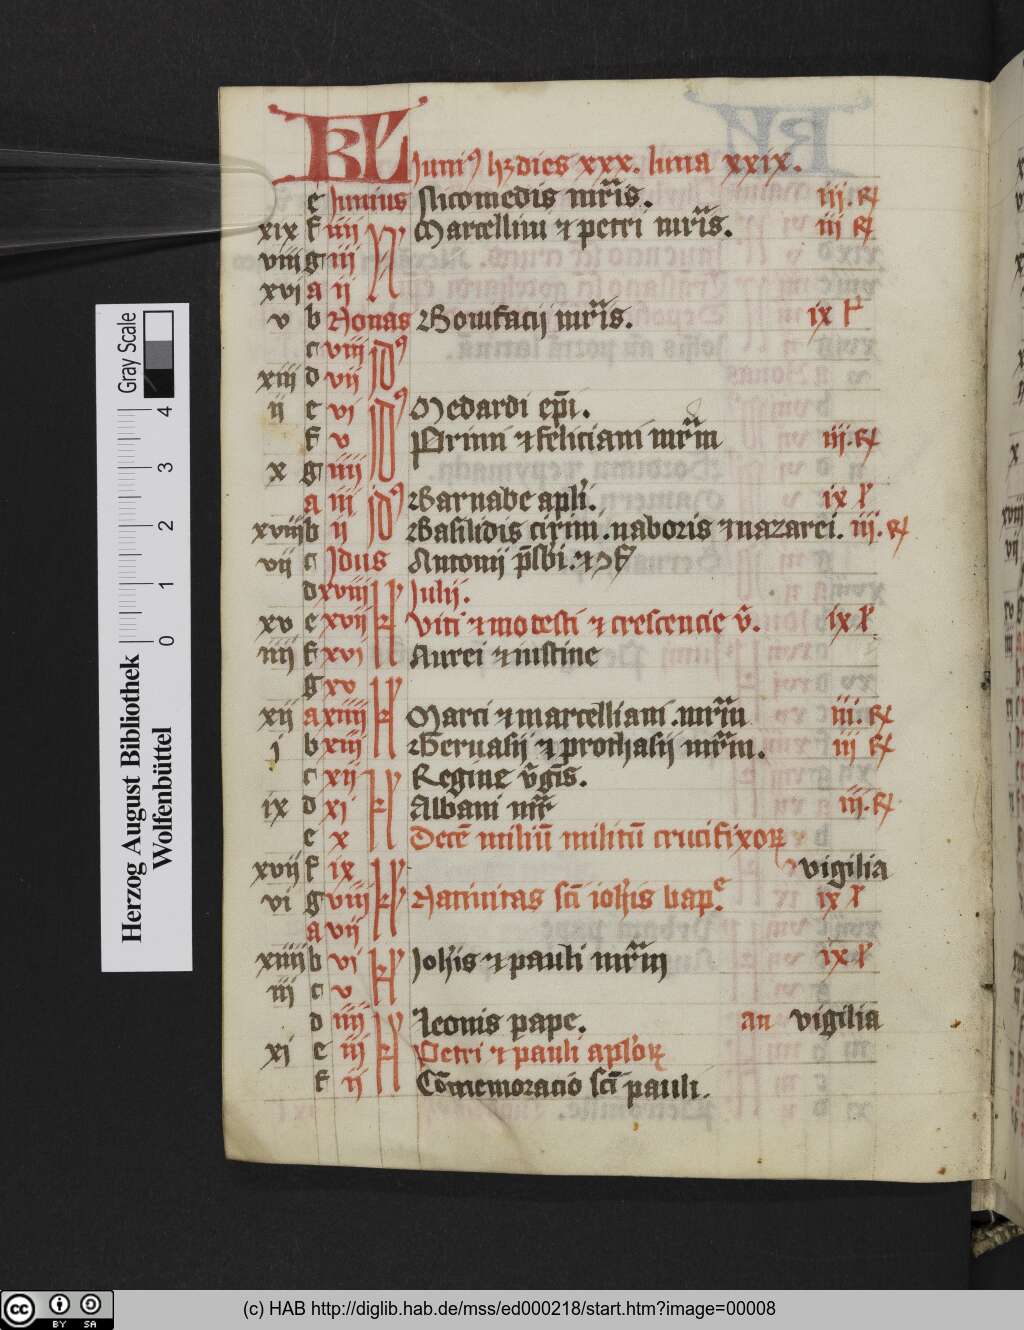 KL Juni9 hꝫ dies xxx. luna xxix.
e Junius Nicomedis mr̃is. iij. R
xix f iiij N Marcellini ⁊ petri mr̃is. iij R
viij g iij
xvi a ij
v b Nonas Bonifacij mr̃is. ix l
c viij Jd9
xiij d vij
ij e vi Jd9 Medardi ep̃i.
f v Primi ⁊ feliciani mr̃m iij. R
x g iiij
a iij Jd9 Barnabe apl̃i. ix l
xviij b ij Basilidis cirini. naboris ⁊ nazarei. iij. R
vij c Jdus Antonij p̃sbi. ⁊ ɔf
d xviij Kl Julij.
xv e xvij Viti ⁊ modesti ⁊ crescencie v̄. ix l
iiij f xvi Aurei ⁊ iustine
g xv Kl
xij a xiiij Marci ⁊ marcelliani. mr̃m iij. R
j b xiij Geruasij ⁊ prothasij mr̃m. iij R
c xij Kl Regine v̄gis.
ix d xi Albani mr̃ iij. R
e x Decē miliū militū crucifixoꝝ
xvij f ix Kl vigilia
vi g viij Natiuitas sc̄i ioh̃is bap.e ix l
a vij
xiiij b vi Kl Joh̃is ⁊ pauli mr̃m ix l
iij c v
d iiij Kl Leonis pape. an vigilia
xi e iij Petri ⁊ pauli apl̃oꝝ
f ij Cōmemoracio sc̄i pauli.
Gray Scale
0 1 2 3 4
Herzog August Bibliothek
Wolfenbüttel
cc BY SA
(c) HAB http://diglib.hab.de/mss/ed000218/start.htm?image=00008